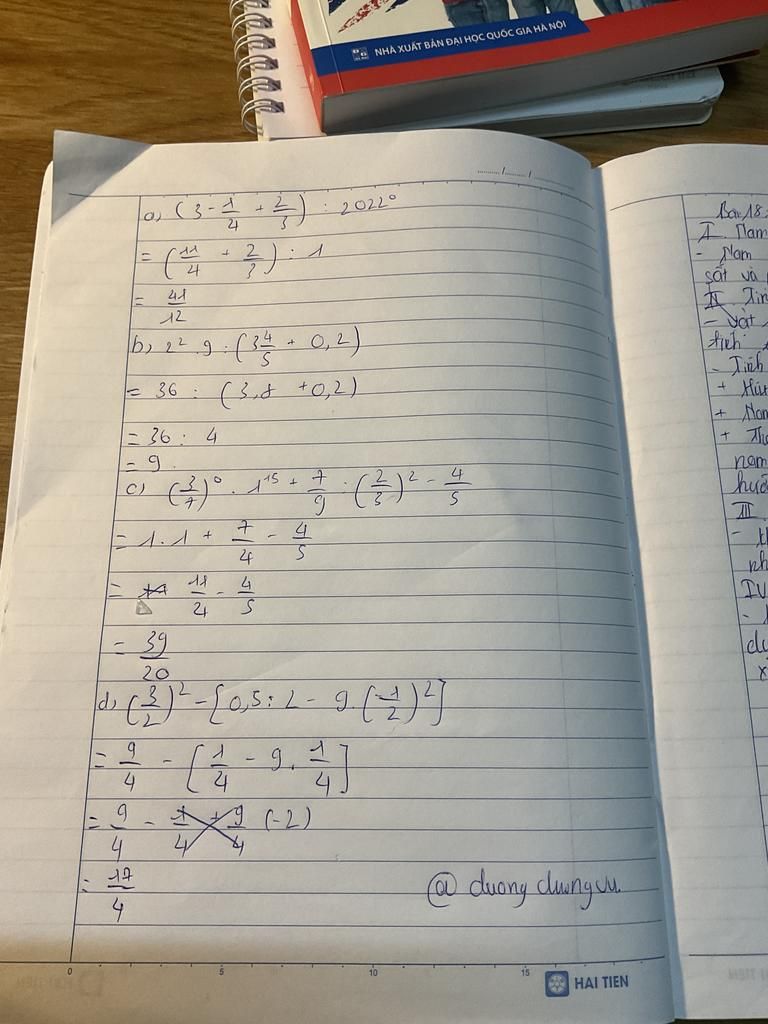 NHÀ XUẤT BẢN ĐẠI HỌC QUỐC GIA HÀ NỘI
a, (3 - 1/4 + 2/3) : 2022⁰
= (11/4 + 2/3) : 1
= 41/12
b, 2² . 9 : (3 4/5 + 0,2)
= 36 : (3,8 + 0,2)
= 36 : 4
= 9.
c) (3/7)⁰ . 1¹⁵ + 7/9 : (2/3)² - 4/5
= 1.1 + 7/4 - 4/5
= 11/4 - 4/5
= 39/20
d, (3/2)² - [0,5 : 2 - 9.(-1/2)²]
= 9/4 - [1/4 - 9. 1/4]
= 9/4 - 1/4 + 9/4 (-2)
= 17/4
@ duong duongvu.
0 5 10 15
HAI TIEN
Bài 18:
I. Nam
- Nam
sắt và
II. Tín
- Vật
tính
- Tính
+ Hú
+ Nam
+ Th
nam
hướ
III.
- t
nh
IV
-
dụ
x